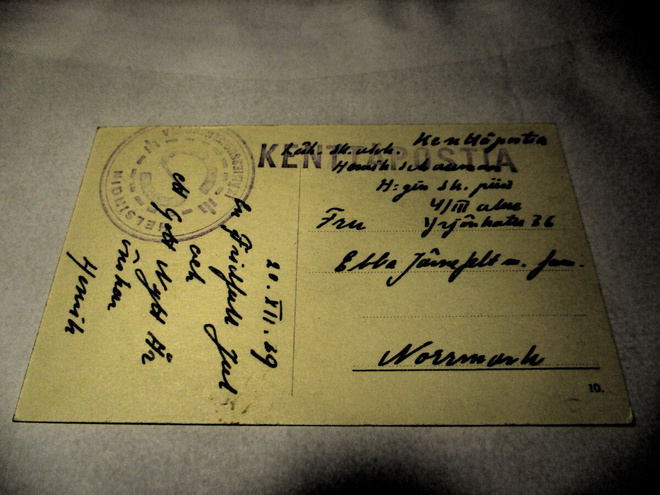 KENTTÄPOSTIA
Kenttäpostia
Läh. sk. utsk.
Henrik
H:gin sk. piiri
4/III alue
Fru Yrjönkatu 36
Ebba Järnefelt m. fam.
Norrmark
10.
HELSINGIN
20.XII.39
En Fridfull Jul
och
ett Gott Nytt År
önskar
Henrik